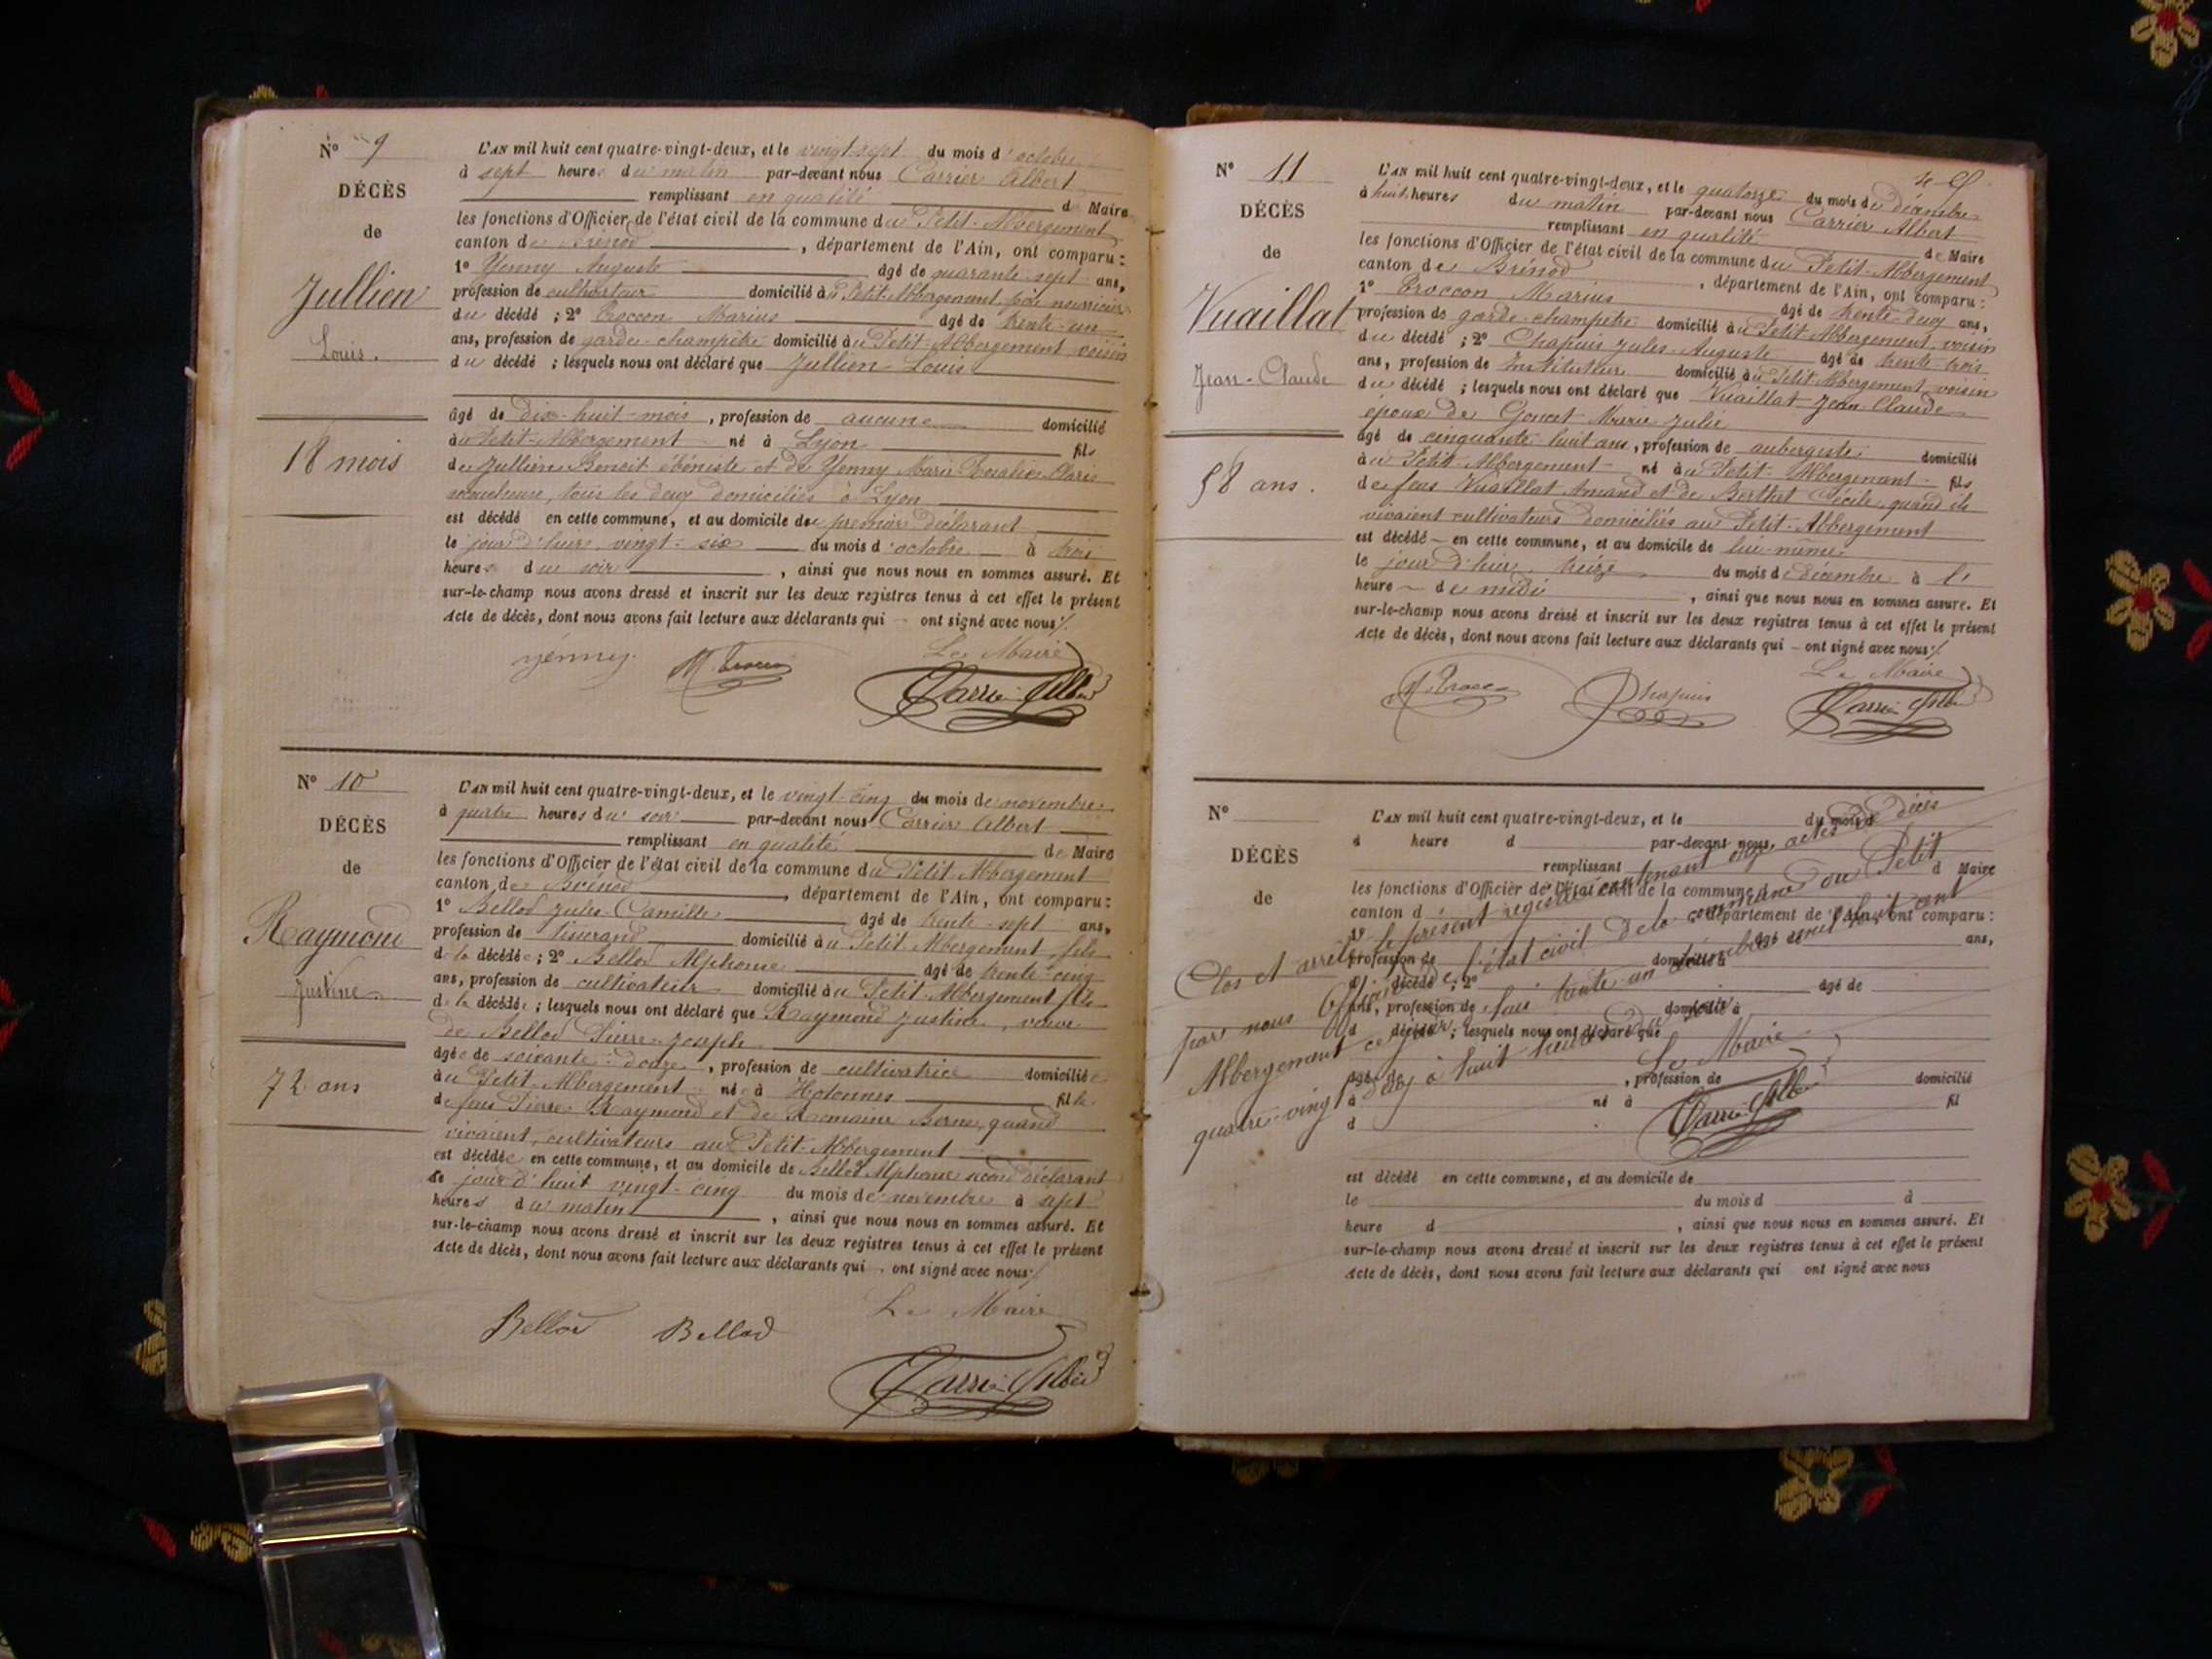 N° 9
DÉCÈS
de
Jullien
Louis.
18 mois
L'AN mil huit cent quatre-vingt-deux, et le vingt-sept du mois d'octobre
à sept heures du matin par-devant nous Carrier Albert
remplissant en qualité de Maire
les fonctions d'Officier de l'état civil de la commune du Petit-Abbergement
canton de Brénod, département de l'Ain, ont comparu :
1° Yenny Auguste âgé de quarante-sept ans,
profession de cultivateur domicilié à Petit-Abbergement, père nourricier
du décédé ; 2° Troccon Marius âgé de trente-un
ans, profession de garde-champêtre domicilié au Petit-Abbergement voisin
du décédé ; lesquels nous ont déclaré que Jullien Louis
âgé de dix-huit-mois, profession de aucune domicilié
au Petit-Abbergement né à Lyon fils
de Jullien Benoit ébéniste et de Yenny Marie Rosalie Claris
tous les deux domiciliés à Lyon
est décédé en cette commune, et au domicile du premier déclarant
le jour d'hier vingt-six du mois d'octobre à trois
heures du soir, ainsi que nous nous en sommes assuré. Et
sur-le-champ nous avons dressé et inscrit sur les deux registres tenus à cet effet le présent
Acte de décès, dont nous avons fait lecture aux déclarants qui ont signé avec nous ./.
Le Maire
yenny. M. Trocco Carrier Albert
N° 10
DÉCÈS
de
Raymond
Justine
72 ans
L'AN mil huit cent quatre-vingt-deux, et le vingt-cinq du mois de novembre
à quatre heures du soir par-devant nous Carrier Albert
remplissant en qualité de Maire
les fonctions d'Officier de l'état civil de la commune du Petit-Abbergement
canton de Brénod, département de l'Ain, ont comparu :
1° Bellod Jules-Camille âgé de trente-sept ans,
profession de tisserand domicilié au Petit-Abbergement, fils
de la décédée ; 2° Bellod Alphonse âgé de trente-cinq
ans, profession de cultivateur domicilié au Petit-Abbergement fils
de la décédée ; lesquels nous ont déclaré que Raymond Justine, veuve
de Bellod Pierre-Joseph
âgée de soixante-douze, profession de cultivatrice domiciliée
au Petit-Abbergement née à Hotonnes fille
de feus Pierre Raymond et de Romaine Berne, quand
vivaient, cultivateurs au Petit-Abbergement
est décédée en cette commune, et au domicile de Bellod Alphonse second déclarant
le jour d'huit vingt-cinq du mois de novembre à sept
heures du matin, ainsi que nous nous en sommes assuré. Et
sur-le-champ nous avons dressé et inscrit sur les deux registres tenus à cet effet le présent
Acte de décès, dont nous avons fait lecture aux déclarants qui ont signé avec nous ./.
Le Maire
Bellod Bellod
Carrier Albert
N° 11
DÉCÈS
de
Vuaillat
Jean-Claude
58 ans.
L'AN mil huit cent quatre-vingt-deux, et le quatorze du mois de décembre
à huit heures du matin par-devant nous Carrier Albert
remplissant en qualité de Maire
les fonctions d'Officier de l'état civil de la commune du Petit-Abbergement
canton de Brénod, département de l'Ain, ont comparu :
1° Troccon Marius âgé de trente-deux ans,
profession de garde-champêtre domicilié au Petit-Abbergement voisin
du décédé ; 2° Chapuis Jules-Auguste âgé de trente-trois
ans, profession de Instituteur domicilié au Petit-Abbergement voisin
du décédé ; lesquels nous ont déclaré que Vuaillat Jean-Claude
époux de Goncet Marie Julie
âgé de cinquante-huit ans, profession de aubergiste domicilié
au Petit-Abbergement né au Petit-Abbergement fils
de feus Vuaillat Amand et de Berthet Cécile, quand ils
vivaient cultivateurs domiciliés au Petit-Abbergement
est décédé en cette commune, et au domicile de lui-même
le jour d'hier treize du mois de décembre à l'
heure de midi, ainsi que nous nous en sommes assuré. Et
sur-le-champ nous avons dressé et inscrit sur les deux registres tenus à cet effet le présent
Acte de décès, dont nous avons fait lecture aux déclarants qui ont signé avec nous ./.
Le Maire
M. Trocco Chapuis Carrier Albert
N°
DÉCÈS
de
L'AN mil huit cent quatre-vingt-deux, et le du mois d
à heure d par-devant nous
remplissant d Maire
les fonctions d'Officier de l'état civil de la commune d
canton d , département de l'Ain, ont comparu :
1° âgé de ans,
profession de domicilié à
d décédé ; 2° âgé de
ans, profession de domicilié à
d décédé ; lesquels nous ont déclaré que
âgé de , profession de domicilié
à né à fil
d
Clos et arrêté le présent registre contenant onze actes de décès
par nous Officier de l'état civil de la commune du Petit
Abbergement ce jour d'hui trente-un décembre mil huit cent
quatre-vingt deux à huit heures du soir
Le Maire
Carrier Albert
est décédé en cette commune, et au domicile de
le du mois d à
heure d , ainsi que nous nous en sommes assuré. Et
sur-le-champ nous avons dressé et inscrit sur les deux registres tenus à cet effet le présent
Acte de décès, dont nous avons fait lecture aux déclarants qui ont signé avec nous